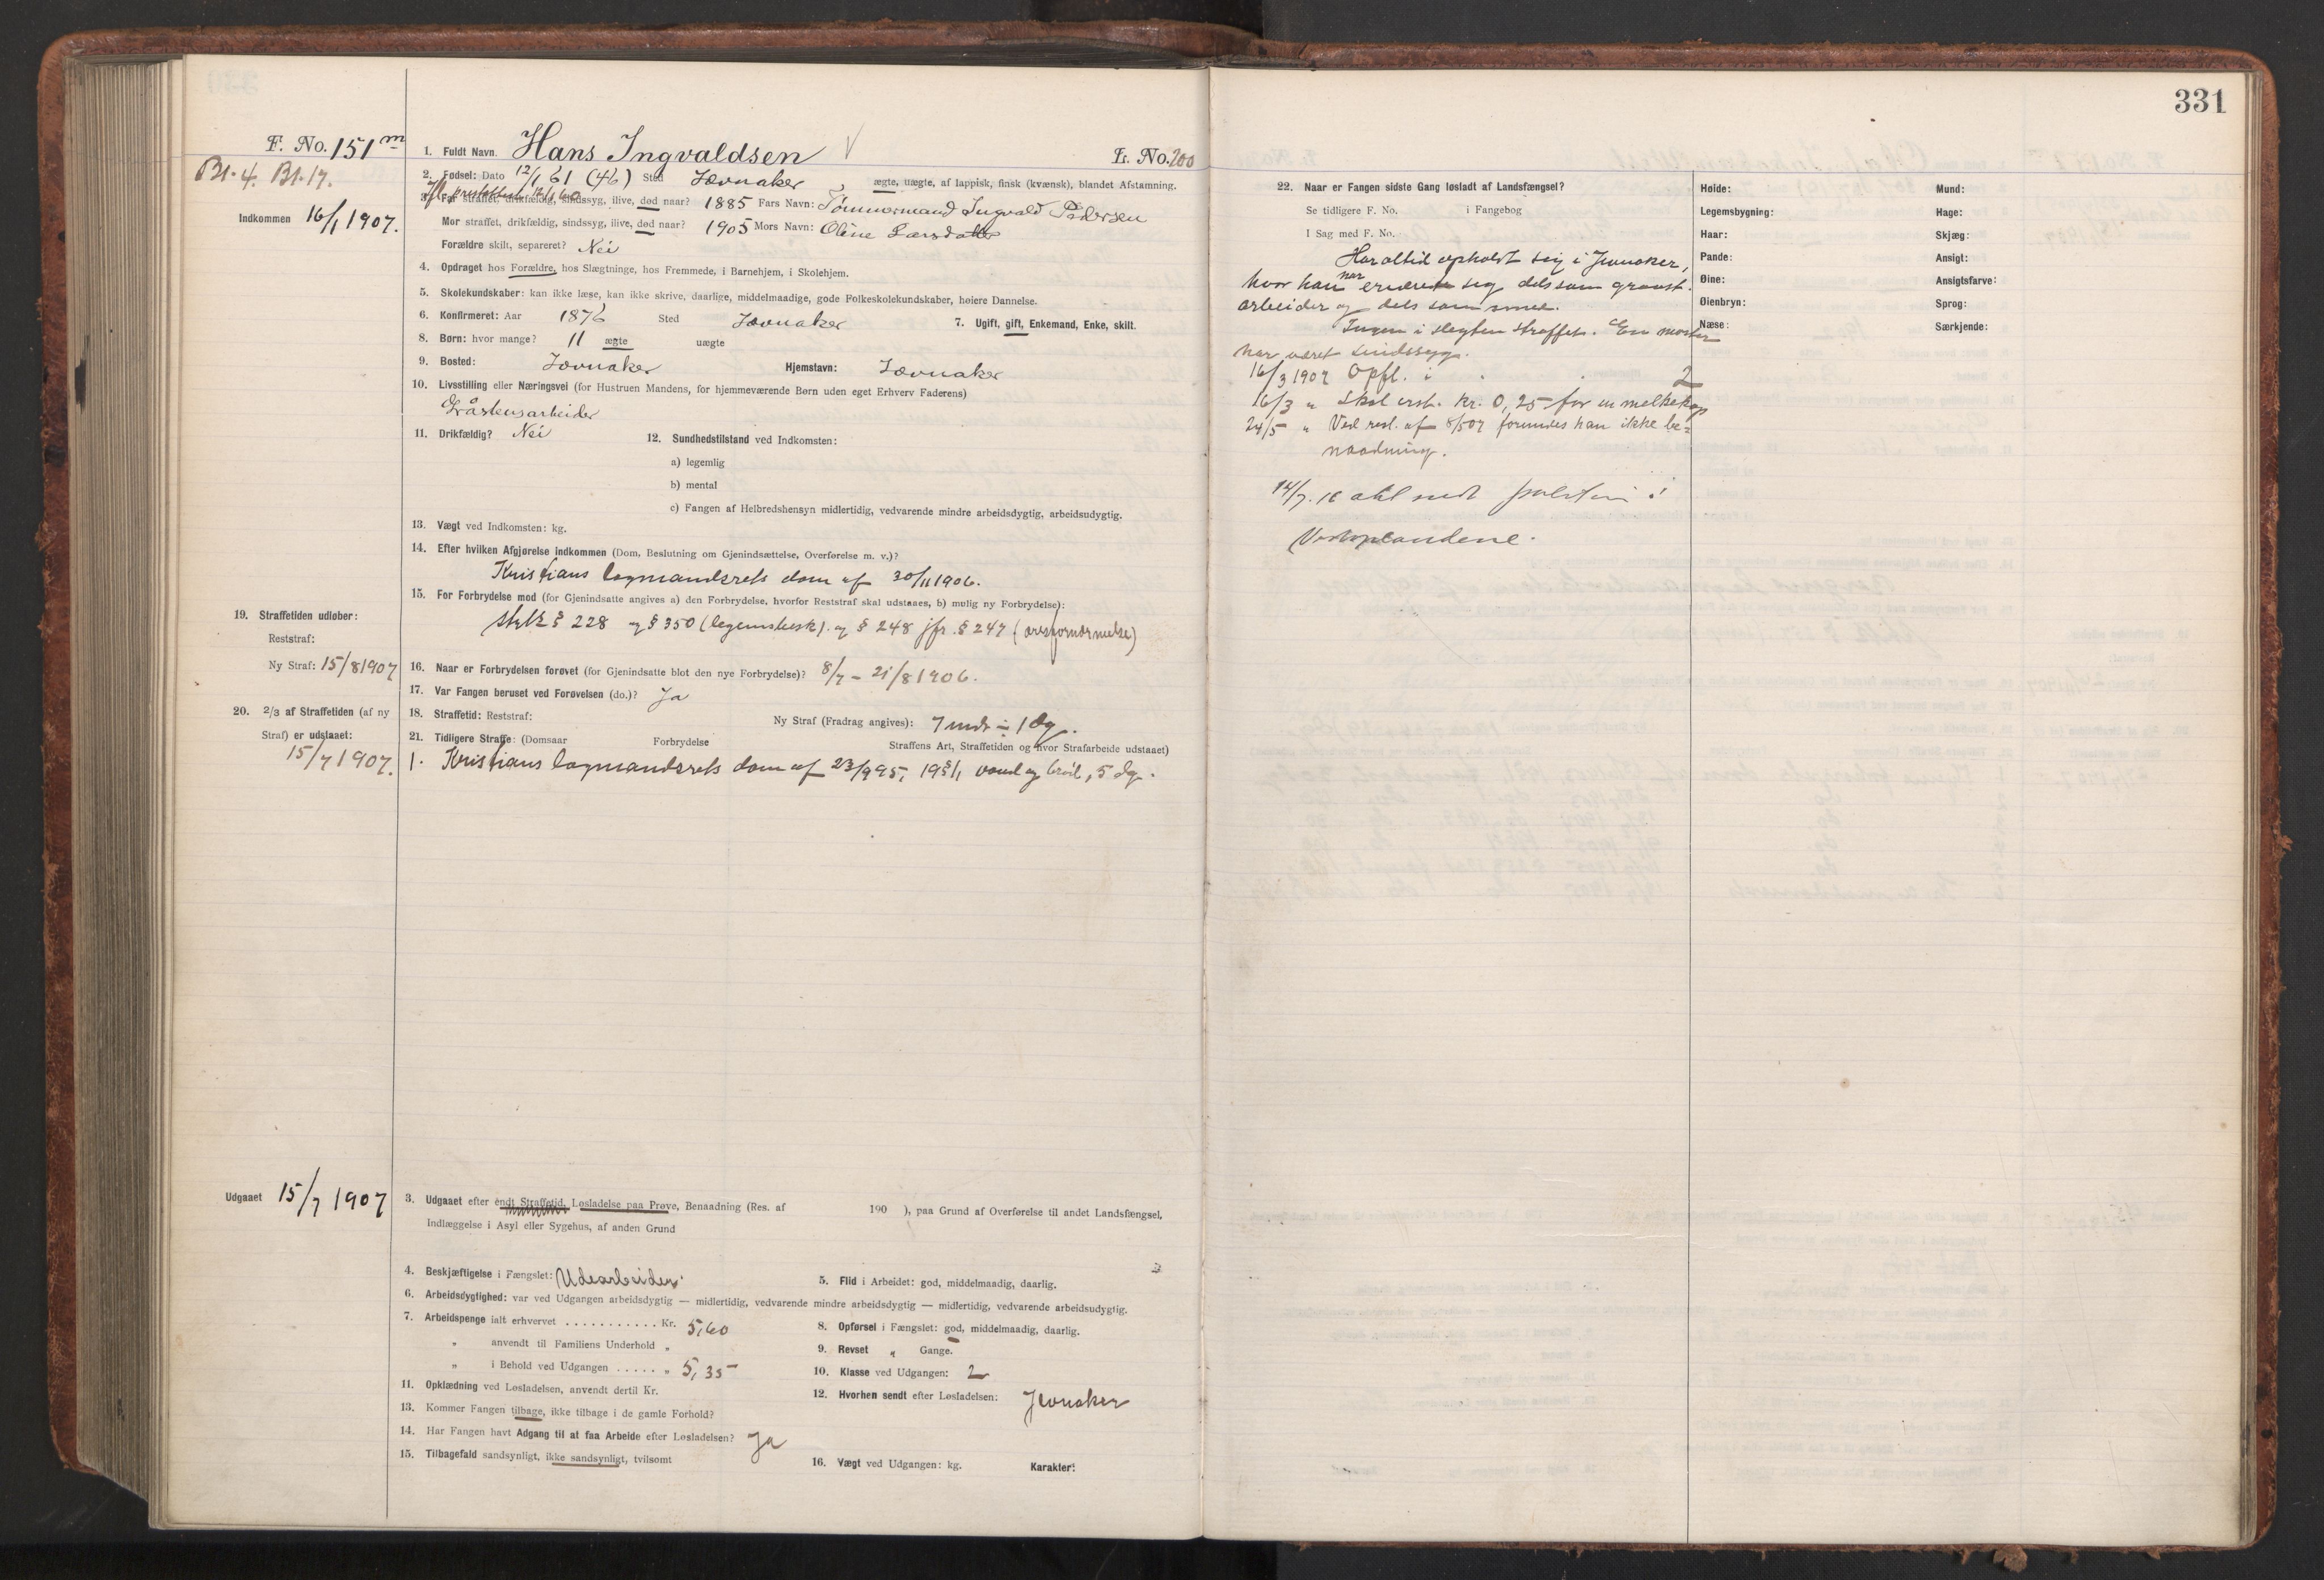 331
F. No. 151 m
Bl. 4. Bl. 17.
Indkommen 16/1 1907.
1. Fuldt Navn. Hans Ingvaldsen L. No. 200
2. Fødsel: Dato 12/1 61 (46) Sted Jævnaker, ægte, uægte, af lappisk, finsk (kvænsk), blandet Afstamning.
3. Far straffet, drikfældig, sindssyg, ilive, død naar? 1885 Fars Navn: Tømmermand Ingvald Pedersen
Mor straffet, drikfældig, sindssyg, ilive, død naar? 1905 Mors Navn: Oline Larsdatter
Forældre skilt, separeret? Nei
4. Opdraget hos Forældre, hos Slægtninge, hos Fremmede, i Barnehjem, i Skolehjem.
5. Skolekundskaber: kan ikke læse, kan ikke skrive, daarlige, middelmaadige, gode Folkeskolekundskaber, høiere Dannelse.
6. Konfirmeret: Aar 1876 Sted Jævnaker 7. Ugift, gift, Enkemand, Enke, skilt.
8. Børn: hvor mange? 11 ægte uægte
9. Bosted: Jævnaker Hjemstavn: Jævnaker
10. Livsstilling eller Næringsvei (for Hustruen Mandens, for hjemmeværende Børn uden eget Erhverv Faderens)
Gråstensarbeider
11. Drikfældig? Nei 12. Sundhedstilstand ved Indkomsten:
a) legemlig
b) mental
c) Fangen af Helbredshensyn midlertidig, vedvarende mindre arbeidsdygtig, arbeidsudygtig.
13. Vægt ved Indkomsten: kg.
14. Efter hvilken Afgjørelse indkommen (Dom, Beslutning om Gjenindsættelse, Overførelse m. v.)?
Kristians lagmandsrets dom af 30/11 1906.
15. For Forbrydelse mod (for Gjenindsatte angives a) den Forbrydelse, hvorfor Reststraf skal udstaaes, b) mulig ny Forbrydelse):
§ 228 og § 350 (legemsbesk). og § 248 jfr. § 247 (æresfornærmelse)
19. Straffetiden udløber:
Reststraf:
Ny Straf: 15/8 1907
16. Naar er Forbrydelsen forøvet (for Gjenindsatte blot den nye Forbrydelse)? 8/7 - 21/8 1906.
17. Var Fangen beruset ved Forøvelsen (do.)? Ja
20. 2/3 af Straffetiden (af ny
Straf) er udstaaet:
15/7 1907.
18. Straffetid: Reststraf: Ny Straf (Fradrag angives): 7 mdr ÷ 1 dg.
21. Tidligere Straffe: (Domsaar Forbrydelse Straffens Art, Straffetiden og hvor Strafarbeide udstaaet)
1. Kristians lagmandsrets dom af 23/9 95, vand og brød, 5 dg.
Udgaaet 15/7 1907
3. Udgaaet efter endt Straffetid, Løsladelse paa Prøve, Benaadning (Res. af 190 ), paa Grund af Overførelse til andet Landsfængsel,
Indlæggelse i Asyl eller Sygehus, af anden Grund
4. Beskjæftigelse i Fængslet: Udearbeider. 5. Flid i Arbeidet: god, middelmaadig, daarlig.
6. Arbeidsdygtighed: var ved Udgangen arbeidsdygtig — midlertidig, vedvarende mindre arbeidsdygtig — midlertidig, vedvarende arbeidsudygtig.
7. Arbeidspenge ialt erhvervet . . . . . . . . . . . Kr. 5,60 8. Opførsel i Fængslet: god, middelmaadig, daarlig.
" anvendt til Familiens Underhold " 9. Revset " Gange.
" i Behold ved Udgangen . . . . . " 5,35 10. Klasse ved Udgangen: 2
11. Opklædning ved Løsladelsen, anvendt dertil Kr. 12. Hvorhen sendt efter Løsladelsen: Jevnaker
13. Kommer Fangen tilbage, ikke tilbage i de gamle Forhold?
14. Har Fangen havt Adgang til at faa Arbeide efter Løsladelsen? Ja
15. Tilbagefald sandsynligt, ikke sandsynligt, tvilsomt 16. Vægt ved Udgangen: kg. Karakter:
22. Naar er Fangen sidste Gang løsladt af Landsfængsel?
Se tidligere F. No. i Fangebog
I Sag med F. No.
Har altid opholdt seig i Jevnaker,
hvor han har ernæret sig dels som graast.
arbeider og dels som smed.
Ingen i slegten straffet. En moster
har været sindssyg.
16/3 1907 Opfl. i 2
16/3 " Skal erst. Kr. 0,25 for en melkekop
24/5 " Ved resl. af 8/5 07 forundes han ikke be=
naadning.
14/7. 16 sendt politim. i
Vestoplandene.
Høide: Mund:
Legemsbygning: Hage:
Haar: Skjæg:
Pande: Ansigt:
Øine: Ansigtsfarve:
Øienbryn: Sprog:
Næse: Særkjende: